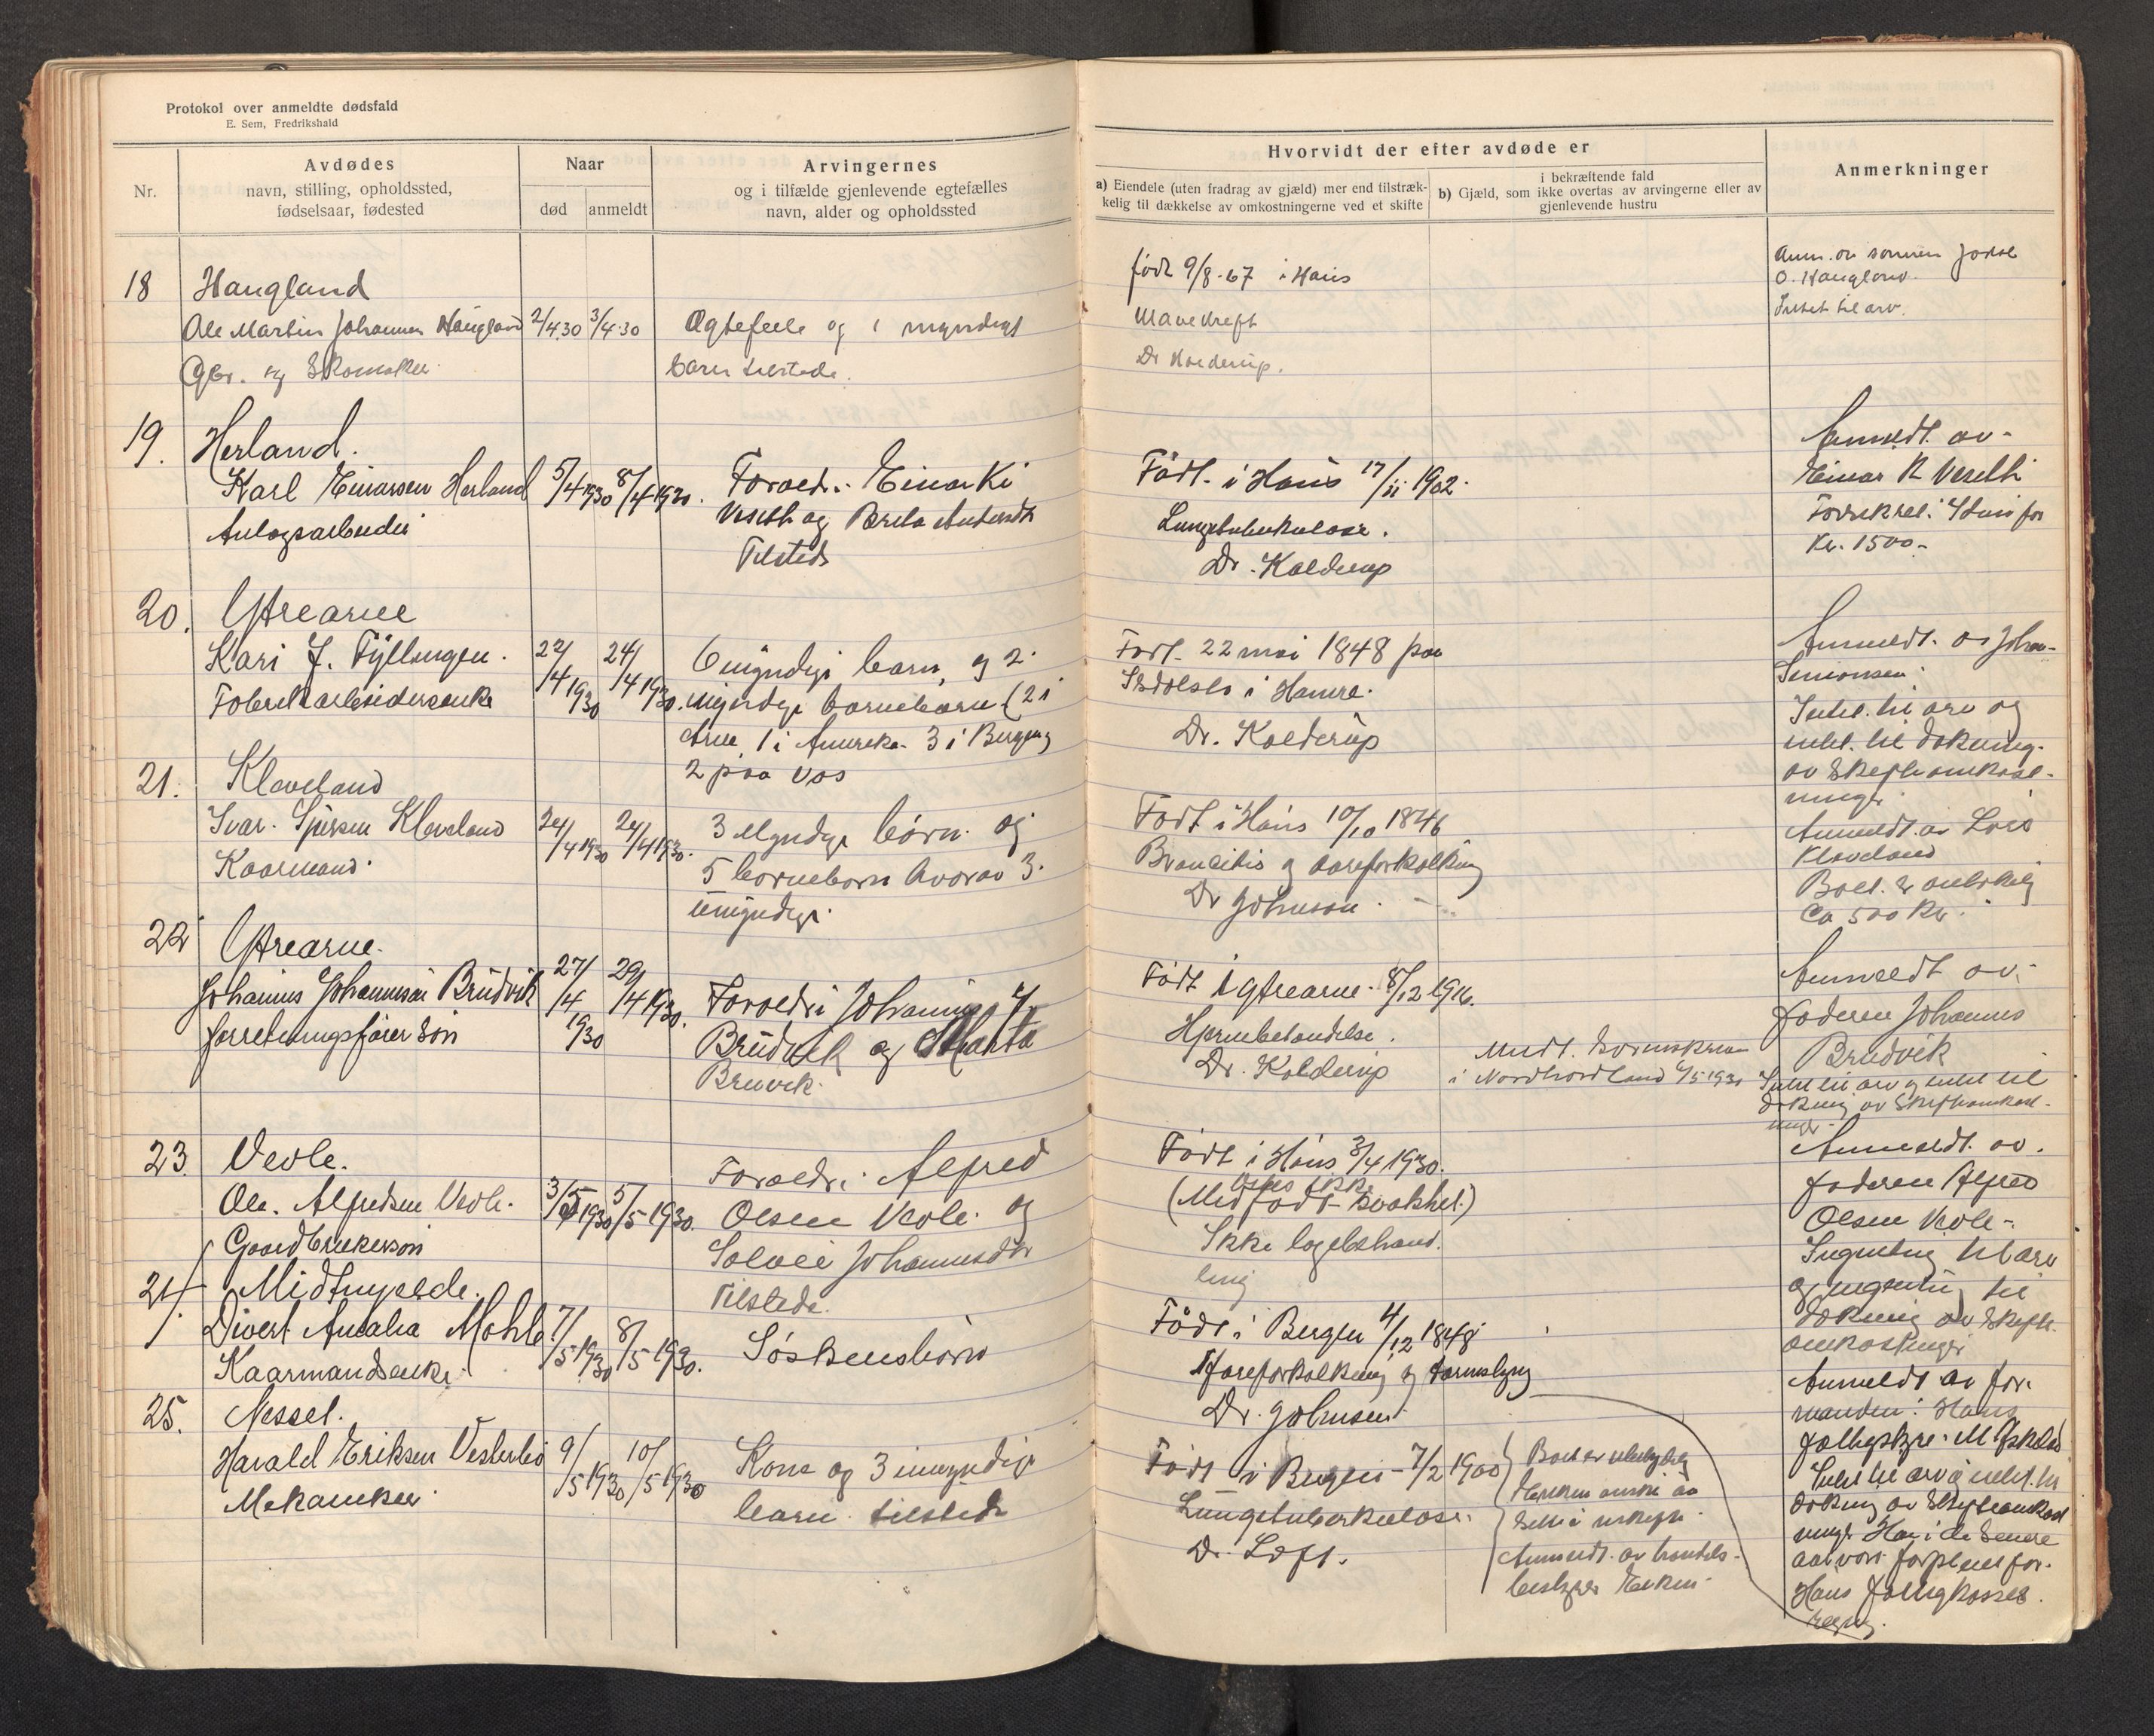 Protokol over anmeldte dødsfald
E. Sem, Fredrikshald
Nr.
Avdødes
navn, stilling, opholdssted,
fødselsaar, fødested
Naar
død
anmeldt
Arvingernes
og i tilfælde gjenlevende egtefælles
navn, alder og opholdssted
Hvorvidt der efter avdøde er
a) Eiendele (uten fradrag av gjæld) mer end tilstræk-
kelig til dækkelse av omkostningerne ved et skifte
i bekræftende fald
b) Gjæld, som ikke overtas av arvingerne eller av
gjenlevende hustru
Anmerkninger
18 Haugland
Ole Martin Johannes Haugland 2/4.30 3/4.30
Gbr. og Skomaker
Ægtefelle og 1 myndigt
barn tilstede.
født 9/8-67 i Haus
Mavekreft
Dr Kolderup.
Anm. av sønnen
O. Haugland
Intet til arv.
19. Herland.
Karl Einarsen Herland 5/4 1930 8/4 1930.
Anlægsarbeider
Foræld: Einar K
og Brita
Tilstede
Født i Haus 17/11 1902.
Lungetuberkulose.
Dr. Kolderup
Anmeldt av
Einar K
for
Kr. 1500-
20. Ytrearne
Kari J. Fyllingen. 22/4 1930 24/4 1930.
Fabrikarbeiderenke
6 myndige barn, og 2
myndige barnebarn (2 i
Arne, 1 i Amerika. 3 i Bergen
2 paa Vos
Født 22 mai 1848 paa
i Hamre.
Dr. Kolderup
Anmeldt av Johan
Simonsen
Intet til arv og
intet til dækning
av skifteomkost-
ninger
21. Kleveland
Ivar Kleveland 24/4 1930 24/4 1930.
Kaarmand.
3 Myndige børn og
5 barnebarn hvorav 3
umyndige.
Født i Haus 10/10 1846
Broncitis og aareforkalkning
Dr Johnson.
Anmeldt av Lars
Kleveland
Boet er
Ca 500 Kr.
22 Ytrearne.
Johannes Johannesen Brudvik 27/4 1930 29/4 1930.
forretningsfører søn
Forældre Johannes
Brudvik og Marta
Bruvik.
Født i Ytrearne 8/12 1916.
Hjernebetændelse.
Dr. Kolderup
i Nordhordland 6/5 1930
Anmeldt av
faderen Johannes
Brudvik
Intet til arv og intet til
dækning av skifteomkost-
ninger
23. Vevle.
Ole Alfredsen Vevle. 3/5 1930 5/5 1930.
Gaardbrukersøn
Forældre Alfred
Olsen Vevle og
Solvei Johannesdtr
Tilstede.
Født i Haus 3/4 1930.
(Medfødt svakhet.)
Ikke lægebehand
ling
Anmeldt av
faderen Alfred
Olsen Vevle.
Ingenting til arv
og ingenting til
dækning av skifte
omkostninger
24. Midtmjelde.
Divert Amalia Mohle 7/5 1930 8/5 1930.
Kaarmandsenke
Søskenebørn
Født i Bergen 4/12 1848
Aareforkalkning og
Dr. Johnsen.
Anmeldt av for-
manden i Haus
Intet til arv og intet til
dækning av skifteomkost
ninger. Har i de senere
aar vært forpleiet for
Haus
regning.
25. Nesset.
Harald Eriksen Vesterbø 9/5 1930 10/5 1930
Mekaniker
Kone og 3 umyndige
barn tilstede
Født i Bergen 7/2 1900
Lungetuberkulose.
Dr.
Boet er ubetydelig
Enken ønsker aa
sitte i uskifte.
Anmeldt av handels-
bestyrer